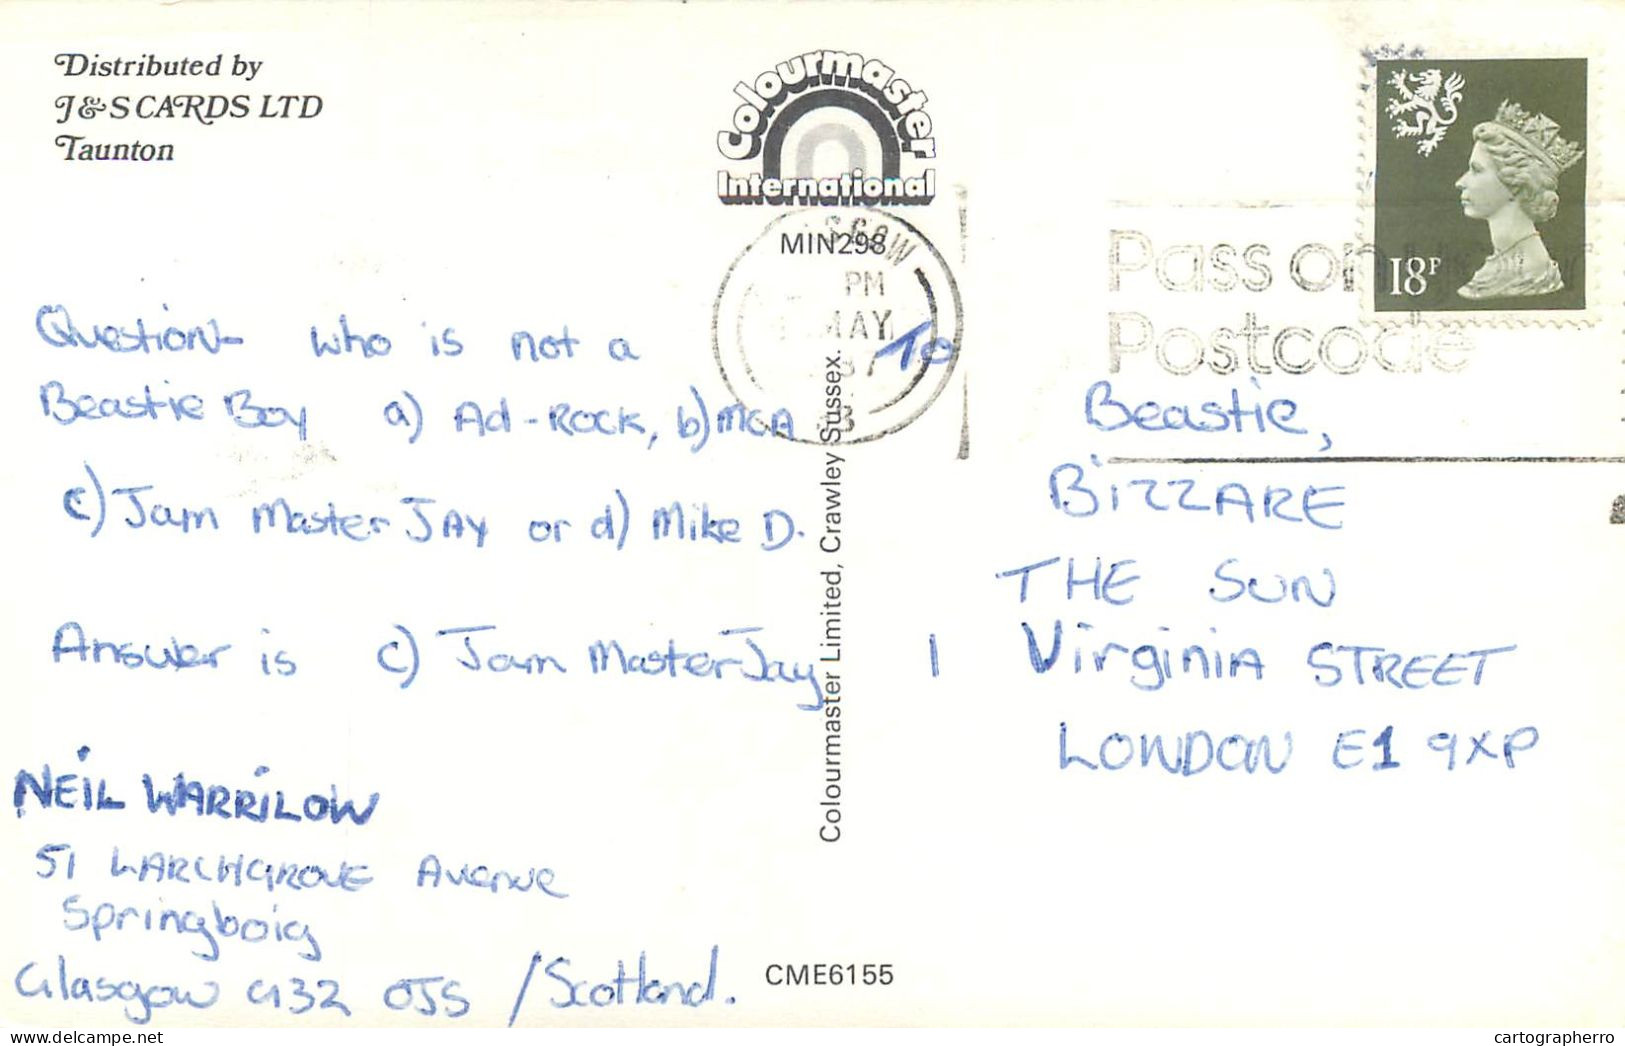 Distributed by
J & S CARDS LTD
Taunton
Colourmaster
International
MIN298
SGOW
PM
MAY
87
Pass on your
Postcode
18P
Question- who is not a
Beastie Boy a) Ad-Rock, b) MCA
c) Jam Master JAY or d) Mike D.
Answer is c) Jam Master Jay
NEIL WARRILOW
51 LARCHGROVE Avenue
Springboig
Glasgow G32 0JS / Scotland.
Colourmaster Limited, Crawley Sussex.
CME6155
To
Beastie,
BIZZARE
THE SUN
1 Virginia STREET
LONDON E1 9XP
Delcampe.net
cartographerro